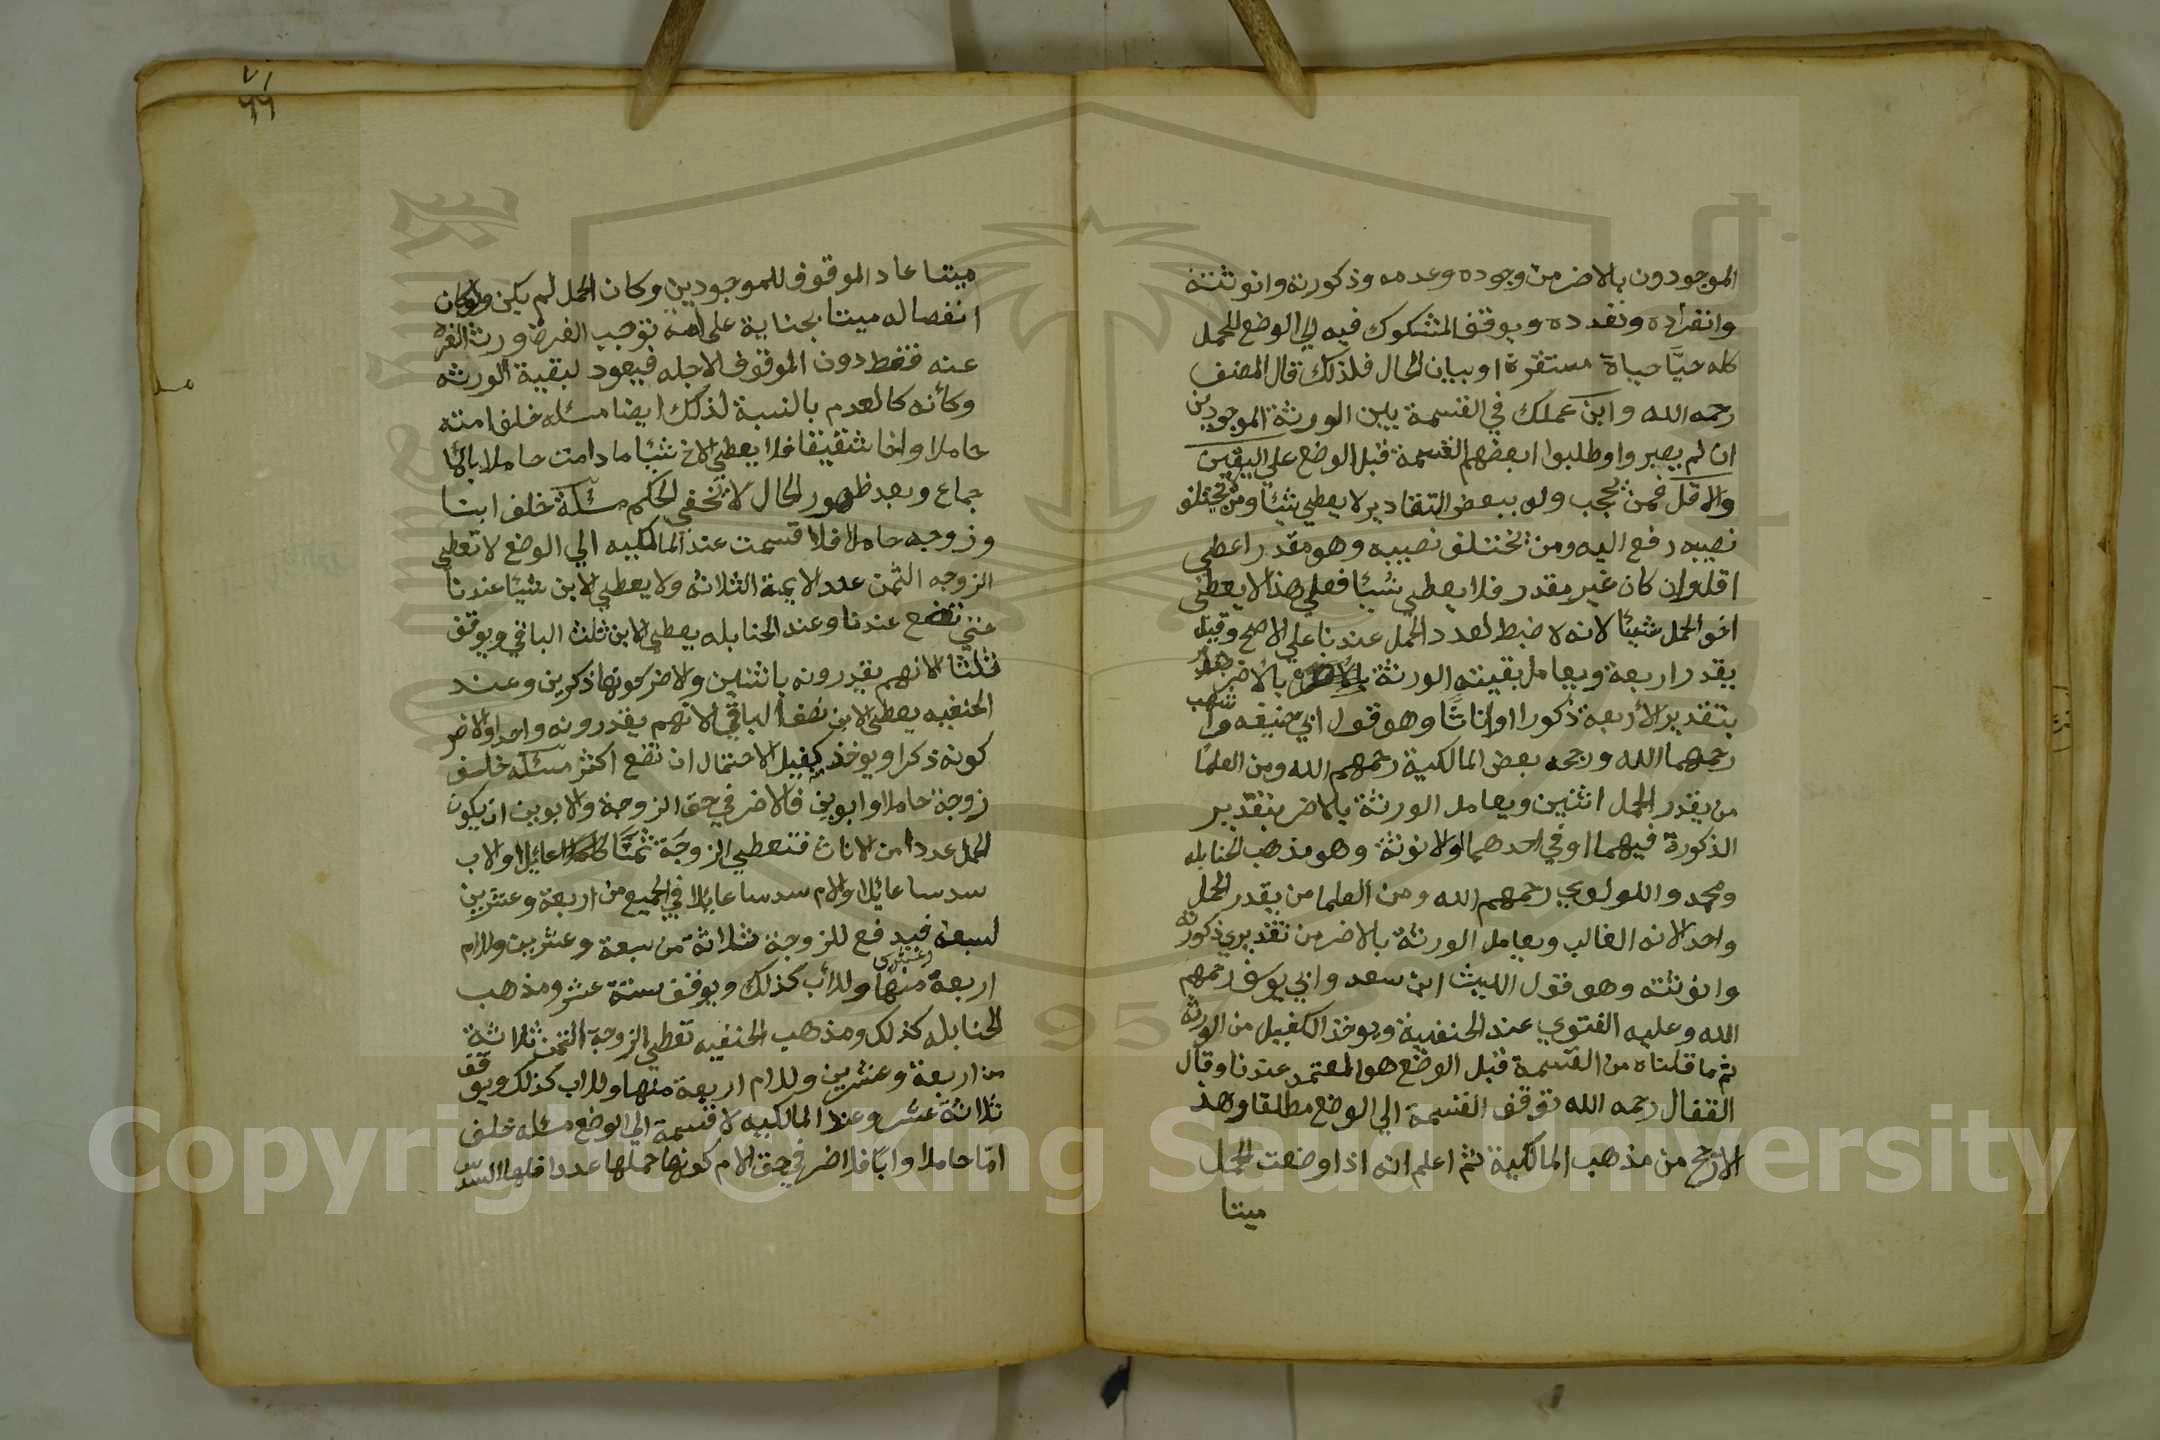 الموجودون بالاضر من وجوده وعدمه وذكورته وانوثته
وانفراده وتعدده ويوقف المشكوك فيه الي الوضع للحمل
كله حيًّا حياة مستقرة او بيان الحال فلذلك قال المصنف
رحمه الله وابن عملك في القسمة بين الورثة الموجودين
ان لم يصبروا وطلبوا بعضهم القسمة قبل الوضع علي اليقين
والاقل فمن يحجب ولو ببعض التقادير لا يعطي شيئا ومن لا يختلف
نصيبه دفع اليه ومن يختلف نصيبه وهو مقدر اعطي
اقله وان كان غير مقدر فلا يعطي شيئا فعلي هذا لا يعطي
اخو الحمل شيئا لانه لا ضبط لعدد الحمل عندنا علي الاصح وقيل
يقدر اربعة ويعامل بقيته الورثة بالاضر
بتقدير الأربعة ذكورا او اناثا وهو قول ابي حنيفه واشهب
رحمهما الله ورجحه بعض المالكية رحمهم الله ومن العلما
من يقدر الحمل اثنين ويعامل الورثة بالاضر بتقدير
الذكورة فيهما او في احدهما او الانوثة وهو مذهب الحنابله
ومحمد واللولوي رحمهم الله ومن العلما من يقدر الحمل
واحد لانه الغالب ويعامل الورثة بالاضر من تقديري ذكورته
وانوثته وهو قول الليث ابن سعد وابي يوسف رحمهم
الله وعليه الفتوي عند الحنفية ويوخذ الكفيل من الورثة
ثم ما قلناه من القسمة قبل الوضع هو المعتمد عندنا وقال
القفال رحمه الله توقف القسمة الي الوضع مطلقا وهذ
الارجح من مذهب المالكية ثم اعلم انه اذا وضعت الحمل
ميتا
٧١
٦٦
ميتا عاد الموقوف للموجودين وكان الحمل لم يكن ولو كان
انفصاله ميتا بجناية على امه توجب الغرة ورث الغرة
عنه فقط دون الموقوف لاجله فيعود لبقية الورثه
وكأنه كالعدم بالنسبة لذلك ايضا مسئله خلف امته
حاملا واخا شقيقا فلا يعطي الاخ شيئا ما دامت حاملا بالا
جماع وبعد ظهور الحال لا تخفي الحكم مسئلة خلف ابنا
وزوجه حاملا فلا قسمت عند المالكيه الي الوضع لا تعطي
الزوجه الثمن عند الايمة الثلاثه ولا يعطي الابن شيئا عندنا
حتي تضع عندنا وعند الحنابله يعطي الابن ثلث الباقي ويوقف
ثلثا لانهم يقدرونه باثنين والاضر كونها ذكرين وعند
الحنفيه يعطى الابن نصف الباقي لانهم يقدرونه واحد والاضر
كونه ذكرا ويوخذ كفيل الاحتمال ان تضع اكثر مسئله خلف
زوجة حاملا وابوين فالاضر في حق الزوجة والابوين ان يكون
الحمل عددا من الاناث فتعطي الزوجة ثمنًا عائلا والاب
سدسا عائلا والام سدسا عايلا في الجميع من اربعة وعشرين
لسبعة فيدفع للزوجة ثلاثة من سبعة وعشرين وللام
اربعة منها وللأب كذلك ويوقف ستة عشر ومذهب
الحنابله كذلك ومذهب الحنفيه تعطي الزوجة الثمن ثلاثة
من اربعة وعشرين وللام اربعة منها وللاب كذلك ويوقف
ثلاثة عشر وعند المالكيه لا قسمة الي الوضع مسئله خلف
امًا حاملا وابًا فلاضر في حق الام كونها حملها عددا فلها السدس
Copyright © King Saud University